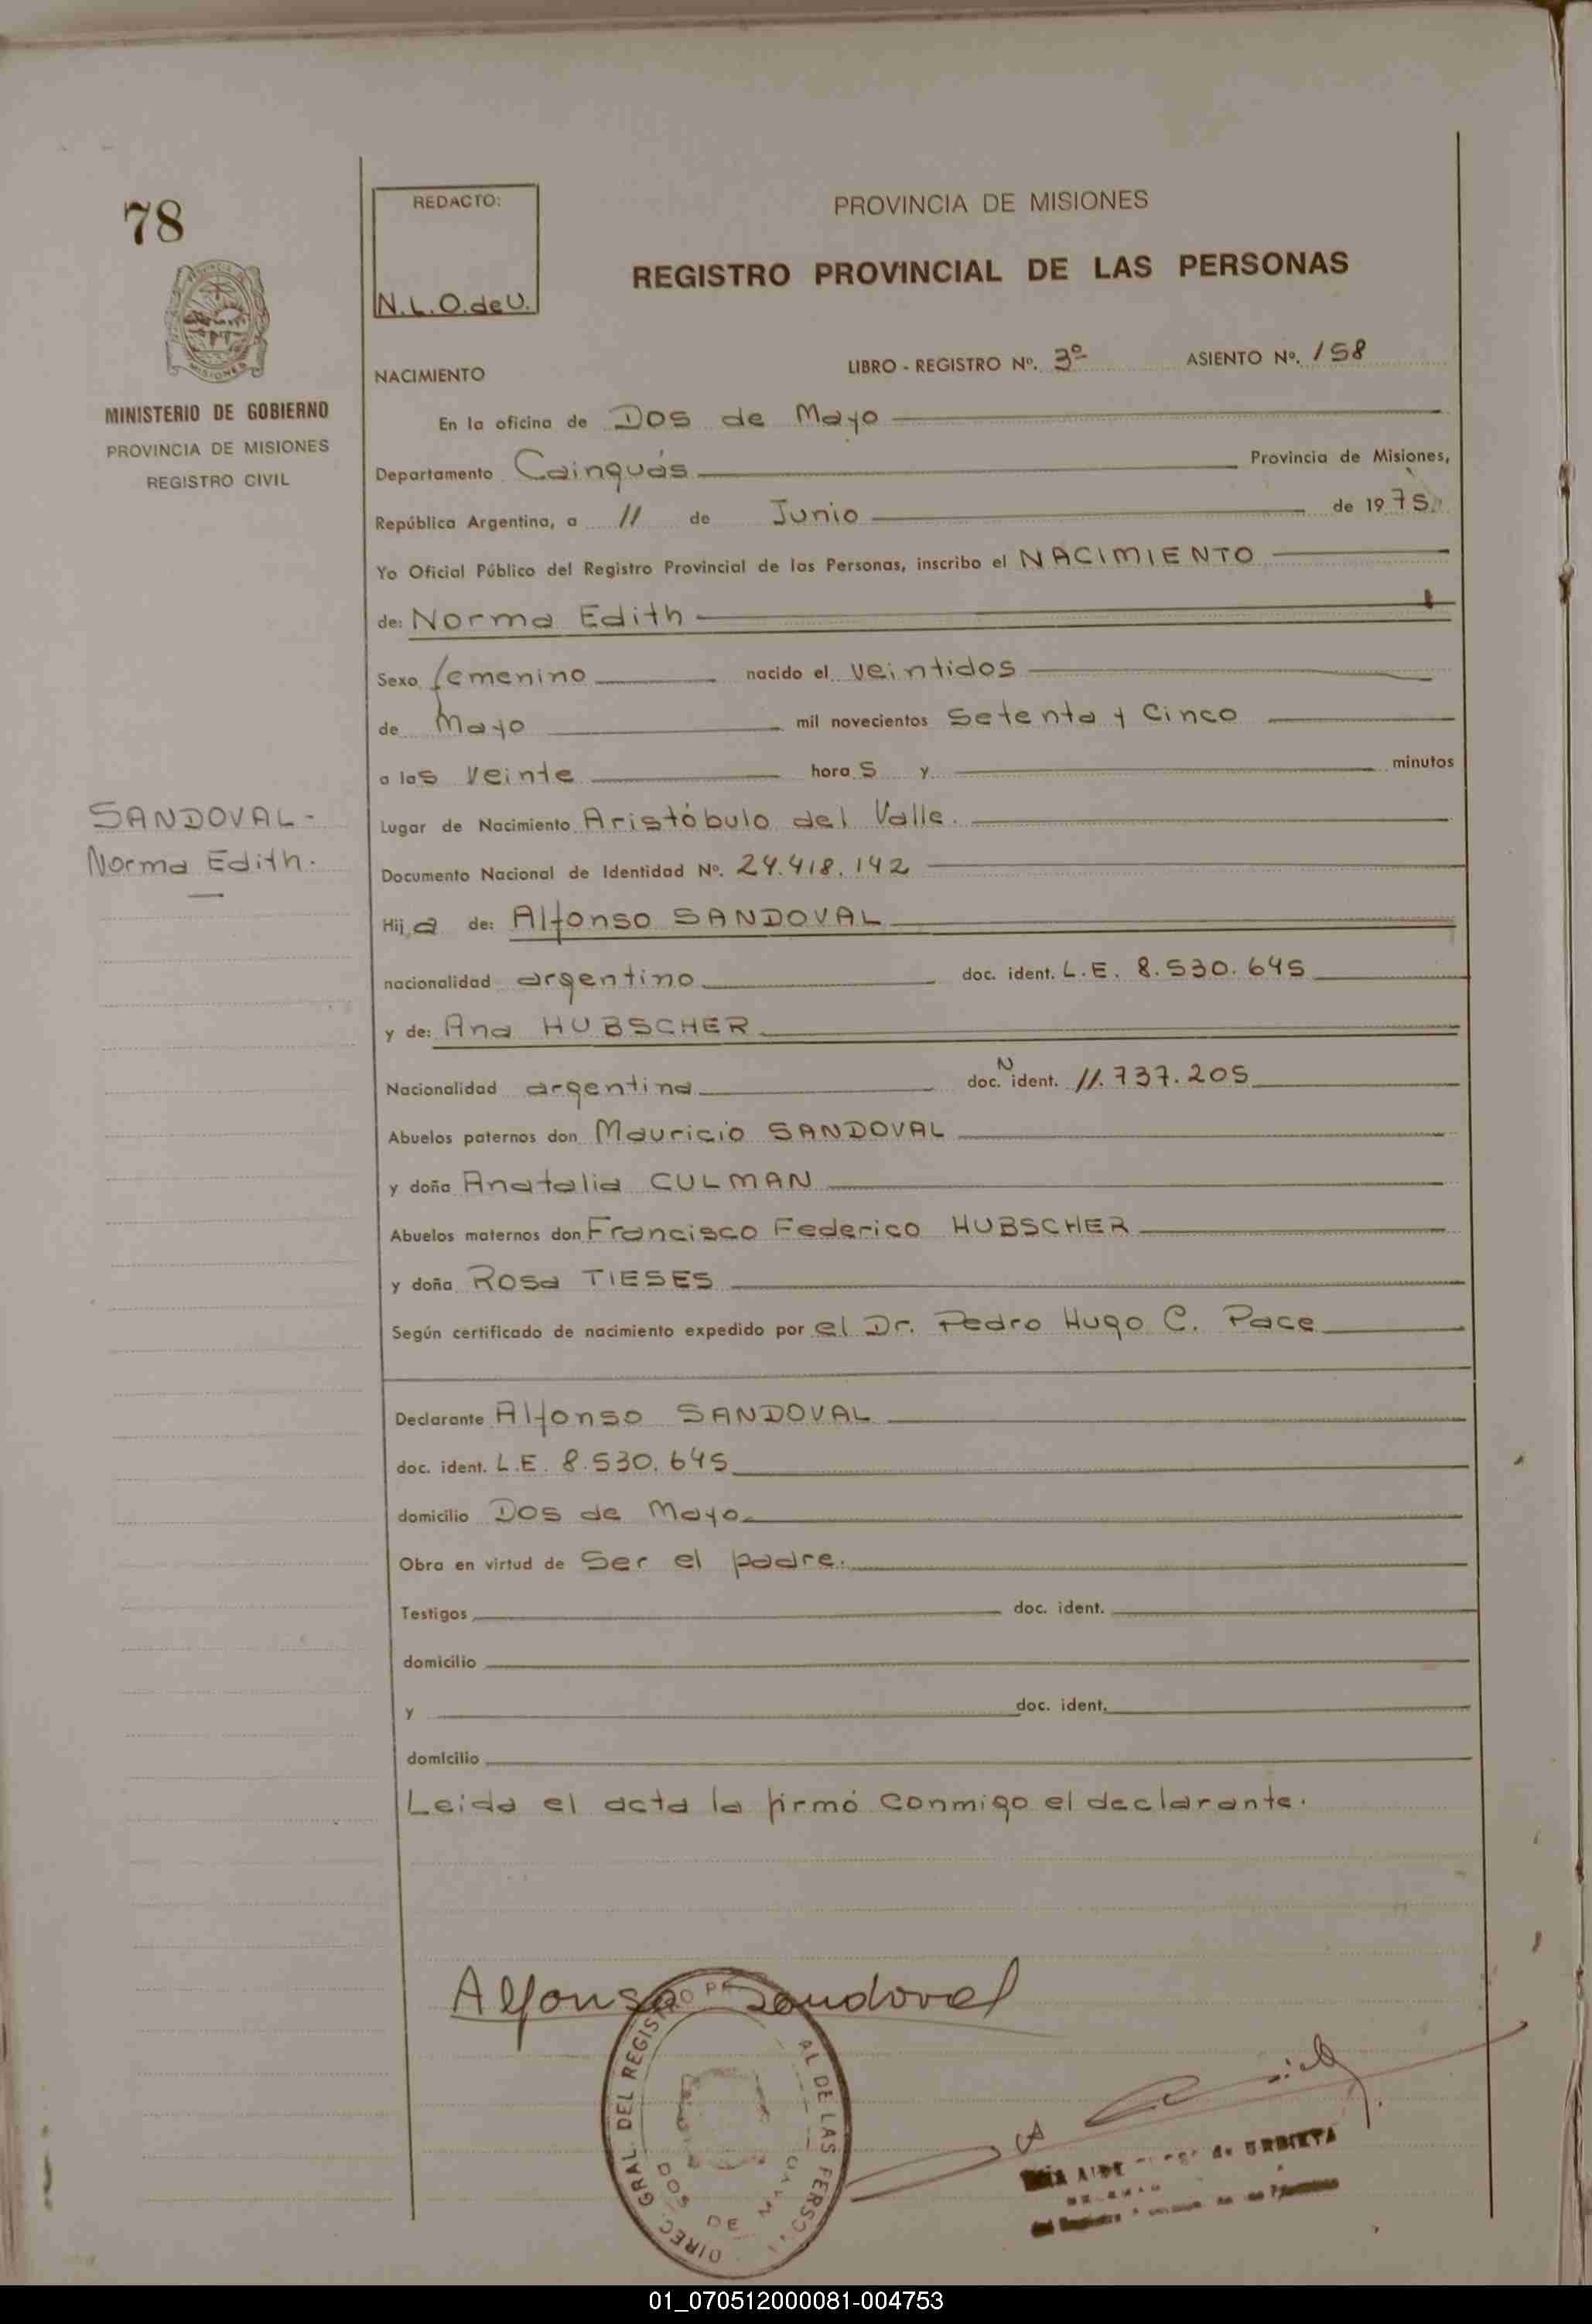 78
REDACTO:
N.L.O.de U.
PROVINCIA DE MISIONES
REGISTRO PROVINCIAL DE LAS PERSONAS
MINISTERIO DE GOBIERNO
PROVINCIA DE MISIONES
REGISTRO CIVIL
NACIMIENTO
LIBRO - REGISTRO Nº. 3º ASIENTO Nº. 158
En la oficina de Dos de Mayo
Departamento Cainguás Provincia de Misiones,
República Argentina, a 11 de Junio de 1975
Yo Oficial Público del Registro Provincial de las Personas, inscribo el NACIMIENTO
de: Norma Edith
Sexo femenino nacido el veintidos
de Mayo mil novecientos setenta y cinco
a las veinte horas y minutos
SANDOVAL-
Norma Edith.
Lugar de Nacimiento Aristóbulo del Valle.
Documento Nacional de Identidad Nº. 24.418.142
Hija de: Alfonso SANDOVAL
nacionalidad argentino doc. ident. L.E. 8.530.645
y de: Ana HUBSCHER
Nacionalidad argentina doc. N ident. 11.737.205
Abuelos paternos don Mauricio SANDOVAL
y doña Anatalia CULMAN
Abuelos maternos don Francisco Federico HUBSCHER
y doña Rosa TIESES
Según certificado de nacimiento expedido por el Dr. Pedro Hugo C. Pace
Declarante Alfonso SANDOVAL
doc. ident. L.E. 8.530.645
domicilio Dos de Mayo
Obra en virtud de ser el padre.
Testigos doc. ident.
domicilio
y doc. ident.
domicilio
Leida el acta la firmó conmigo el declarante.
Alfonso Sandoval
DIREC. GRAL. DEL REGISTRO DE LAS
DOS DE MAYO
de URBIETA
01_070512000081-004753